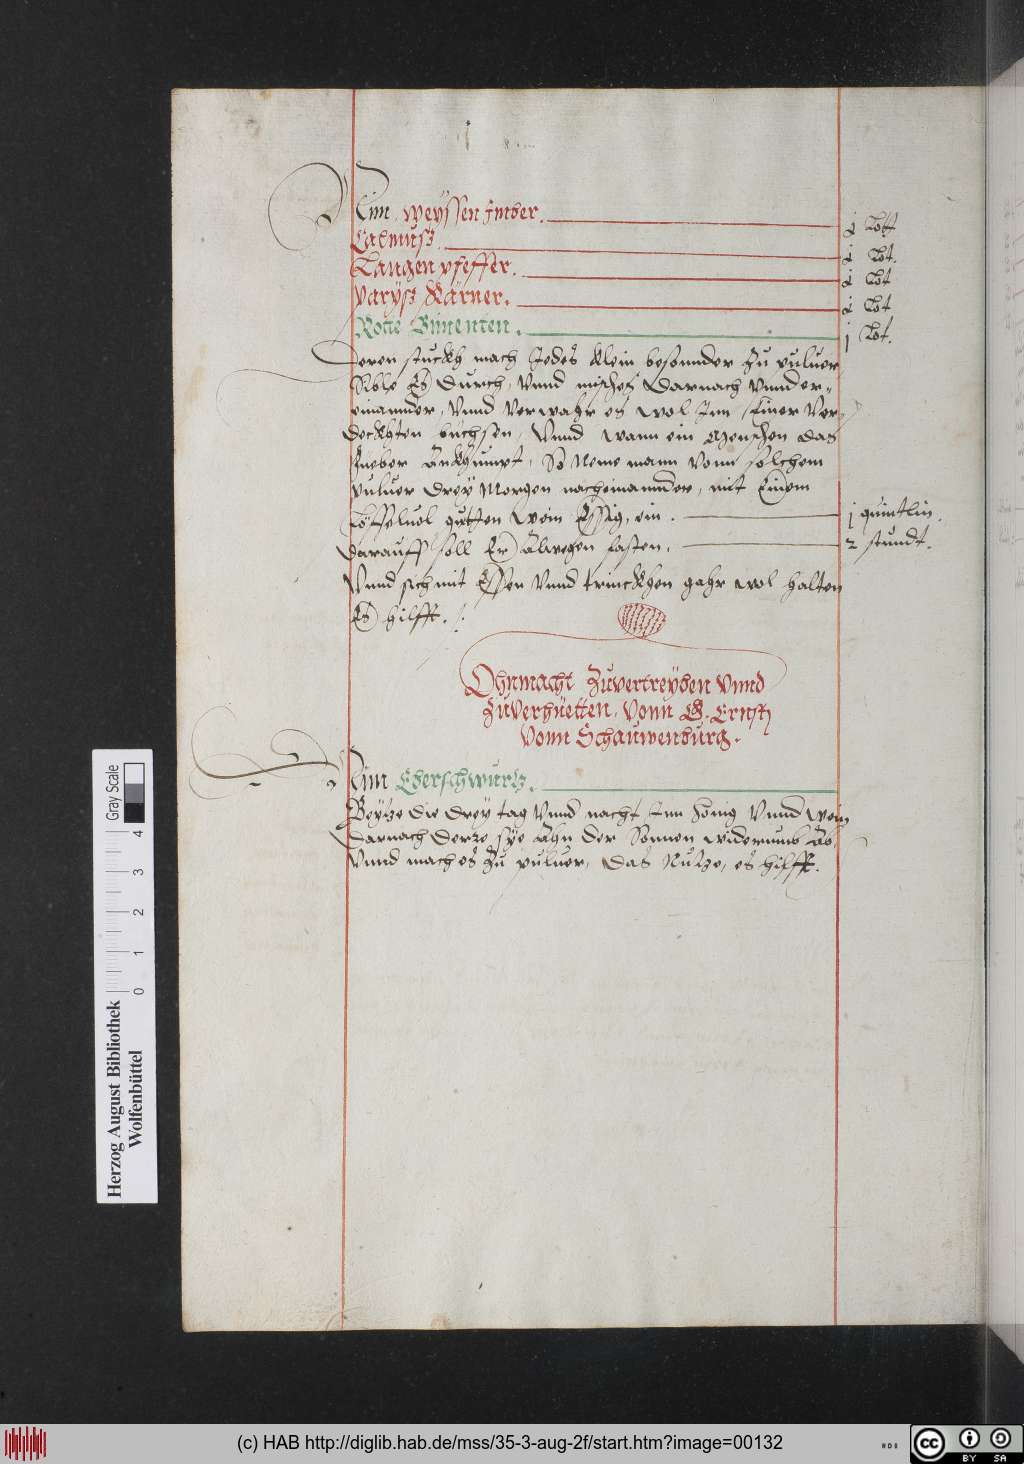 Nim weyssen Jmber. j Lott
Calmusz. j Lot.
Langen pfeffer. j Lot
Parysz Kärner. j Lot
Rotte Bimenten. j Lot.
Deren stuckh mach Jedes klein besonnder Zu puluer
Sible Es Durch, Vnnd misches Darnach Vnnder-
einannder, Vnnd Verwahr es wol Jnn Einer Ver-
deckhten büchsen, Vnnd wann ein Menschen das
Fieber Ankhumpt, So Neme mann Vonn solchem
puluer Drey Morgen nacheinannder, mit Einem
Löffeluol gutten Wein Essig, ein. j quintlin.
Darauff soll Er Alwegen fasten, 2 stundt.
Vnnd sich mit Essen Vnnd trinckhen gahr wol halten
Es hilfft.
Ohnmacht Zuvertreyben Vnnd
Zuverhüetten, Vonn G. Ernst
Vonn Schauwenburg.
Nim Eberschwurtz.
Beytze die Drey tag Vnnd nacht Jnn Honig Vnnd Wein
Darnach Derre sye Ahn der Sonnen widerumb Ab,
Vnnd mach es Zu puluer, Das Nutze, es hilfft.
Herzog August Bibliothek
Wolfenbüttel
0 1 2 3 4
Gray Scale
(c) HAB http://diglib.hab.de/mss/35-3-aug-2f/start.htm?image=00132
cc BY SA